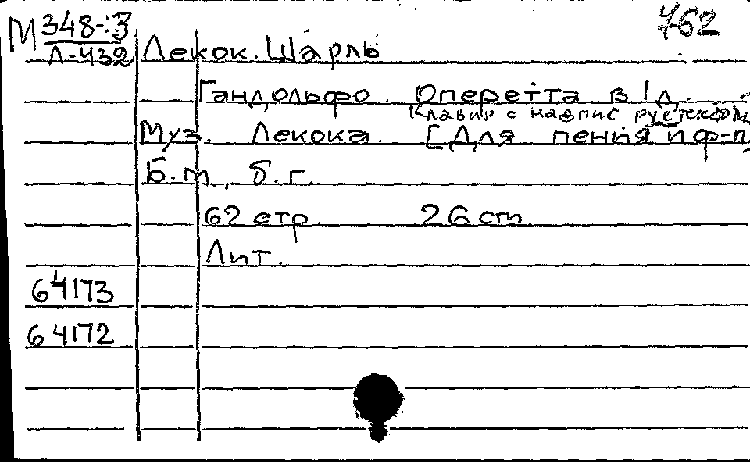 М 348-3 762
Л-432 Лекок. Шарль
Гандольфо Оперетта в 1д.
Клавир с надпис русским
Муз. Лекока [Для пения и ф-п
Б.м., б.г.
62 стр 26 см
Лит.
64173
64172